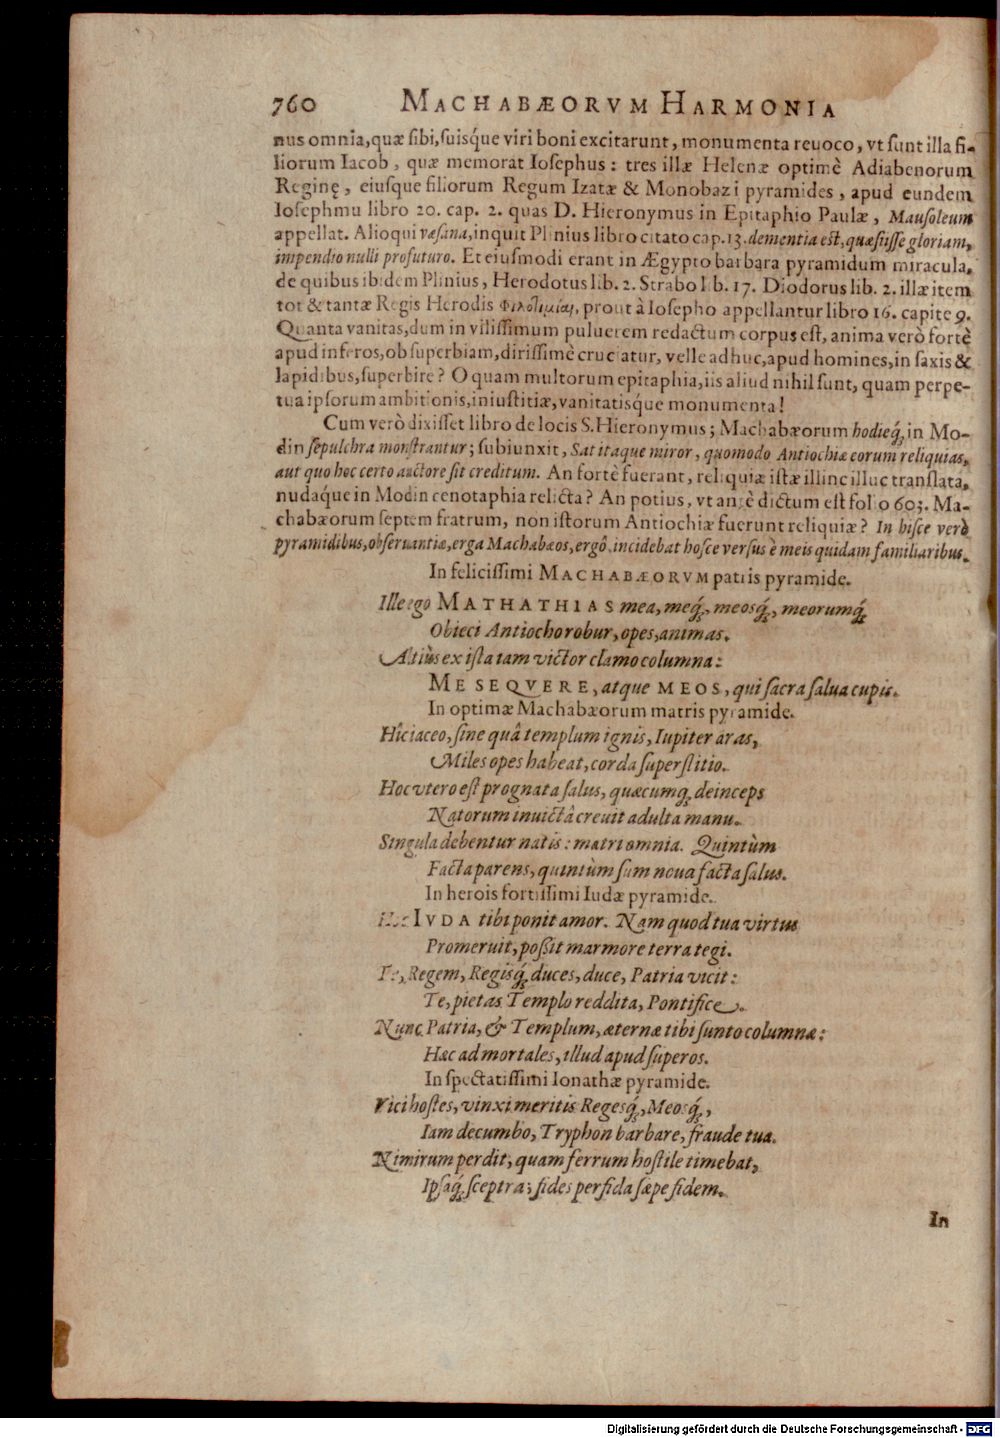 760 MACHABÆORVM HARMONIA
nus omnia, quæ sibi, suisq́ue viri boni excitarunt, monumenta reuoco, vt sunt illa fi-
liorum Iacob, quæ memorat Iosephus: tres illæ Helenæ optimè Adiabenorum
Reginę, eiusque filiorum Regum Izatæ & Monobazi pyramides, apud eundem
Iosephmu libro 20. cap. 2. quas D. Hieronymus in Epitaphio Paulæ, Mausoleum
appellat. Alioqui væsana, inquit Plinius libro citato cap. 13. dementia est, quæsiisse gloriam,
impendio nulli profuturo. Et eiusmodi erant in Ægypto barbara pyramidum miracula,
de quibus ibidem Plinius, Herodotus lib. 2. Strabo lib. 17. Diodorus lib. 2. illæ item
tot & tantæ Regis Herodis Φιλοτιμίαι, prout à Iosepho appellantur libro 16. capite 9.
Quanta vanitas, dum in vilissimum puluerem redactum corpus est, anima verò fortè
apud inferos, ob superbiam, dirissimè cruciatur, velle adhuc, apud homines, in saxis &
lapidibus, superbire? O quam multorum epitaphia, iis aliud nihil sunt, quam perpe-
tua ipsorum ambitionis, iniustitiæ, vanitatisq́ue monumenta!
Cum verò dixisset libro de locis S. Hieronymus; Machabæorum hodieq́; in Mo-
din sepulchra monstrantur; subiunxit, Sat itaque miror, quomodo Antiochiæ eorum reliquias,
aut quo hoc certo auctore sit creditum. An fortè fuerant, reliquiæ istæ illinc illuc translata,
nudaq́ue in Modin cenotaphia relicta? An potius, vt antè dictum est folio 603. Ma-
chabæorum septem fratrum, non istorum Antiochiæ fuerunt reliquiæ? In hisce verò
pyramidibus, obseruantiæ, erga Machabæos, ergô, incidebat hosce versus è meis quidam familiaribus.
In felicissimi MACHABÆORVM patris pyramide.
Ille ego MATHATHIAS mea, meq́;, meosq́;, meorumq́;
Obieci Antiocho robur, opes, animas.
Altiùs ex ista iam victor clamo columna:
ME SEQVERE, atque MEOS, qui sacra salua cupis.
In optimæ Machabæorum matris pyramide.
Hîc iaceo, sine quâ templum ignis, Iupiter aras,
Miles opes habeat, corda superstitio.
Hoc vtero est prognata salus, quæcumq; deinceps
Natorum inuictâ creuit adulta manu.
Singula debentur natis: matri omnia. Quintùm
Facta parens, quintùm sum noua facta salus.
In herois fortissimi Iudæ pyramide.
Hoc IVDA tibi ponit amor. Nam quod tua virtus
Promeruit, possit marmore terra tegi.
Te, Regem, Regisq́; duces, duce, Patria vicit:
Te, pietas Templo reddita, Pontifice.
Nunc Patria, & Templum, æternæ tibi sunto columnæ:
Hæc ad mortales, illud apud superos.
In spectatissimi Ionathæ pyramide.
Vici hostes, vinxi meritis Regesq́;, Meosq́;,
Iam decumbo, Tryphon barbare, fraude tua.
Nimirum perdit, quam ferrum hostile timebat,
Ipsaq́; sceptra; fides perfida sæpe fidem.
In
Digitalisierung gefördert durch die Deutsche Forschungsgemeinschaft - DFG